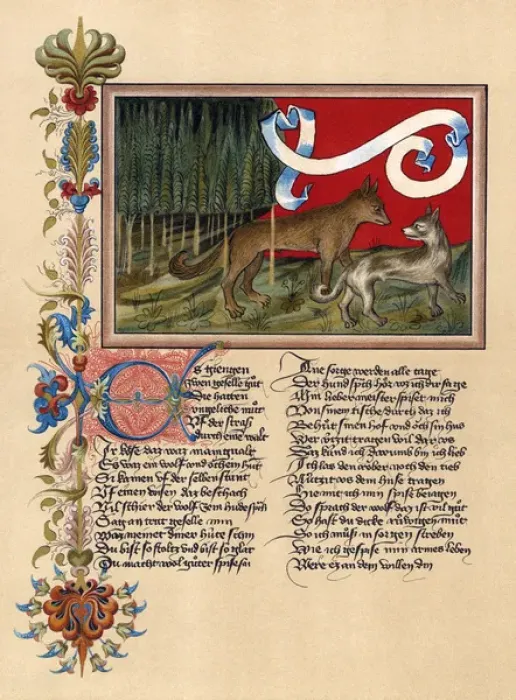 Es giengen
zwen geselle gůt
Die hatten
vngeliche můt
Vf der strasz
durch eine walt
Ir kose daz waz manigualt
Es waz ein wolf vnd och ein hůt
Si kamen vf der selben stunt
Vf einen wasen daz beschach
Vil schier der wolf zem hůde sp̃ch
Sag an trut geselle min
Waz meinet diner hüte schin
Du bist so stoltz vnd bist so glat
Du macht wol gůter spise
Ane sorge werden alle tage
Der hund spch hör wz ich dir sage
Min lieber meister spiset mich
Von sinem tische durch daz ich
Behüt sinen hof vnd och sin hus
Wer nützit tragen wil dar vs
Daz künd ich darvmb bin ich lieb
Ich las den röber noch den dieb
Nützit vs dem huse tragen
Hie mit ich min spise beiagen
Do sprach der wolf daz ist vil gůt
So hast du dicke růwigen můt
So ich můsz in sorgen streben
Wie ich gespise min armes leben
Were ez an dem willen din